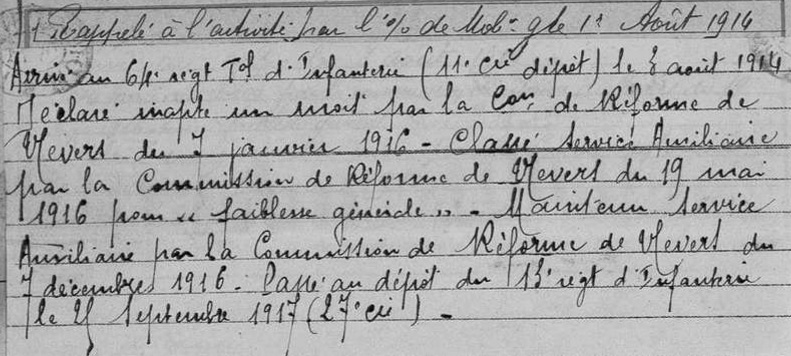 Rappelé à l'activité par l'o/o de Mob.on gle 1r Août 1914
Arrivé au 64e régt T.al d'Infanterie (11e Cie dépôt) le 3 août 1914
Déclaré inapte un mois par la Con de Réforme de
Nevers du 7 janvier 1916 - Classé Service Auxiliaire
par la Commission de Réforme de Nevers du 19 mai
1916 pour « faiblesse générale » - Maintenu Service
Auxiliaire par la Commission de Réforme de Nevers du
7 décembre 1916 - Passé au dépôt du 13e régt d'Infanterie
le Septembre 1917 (27e Cie) -